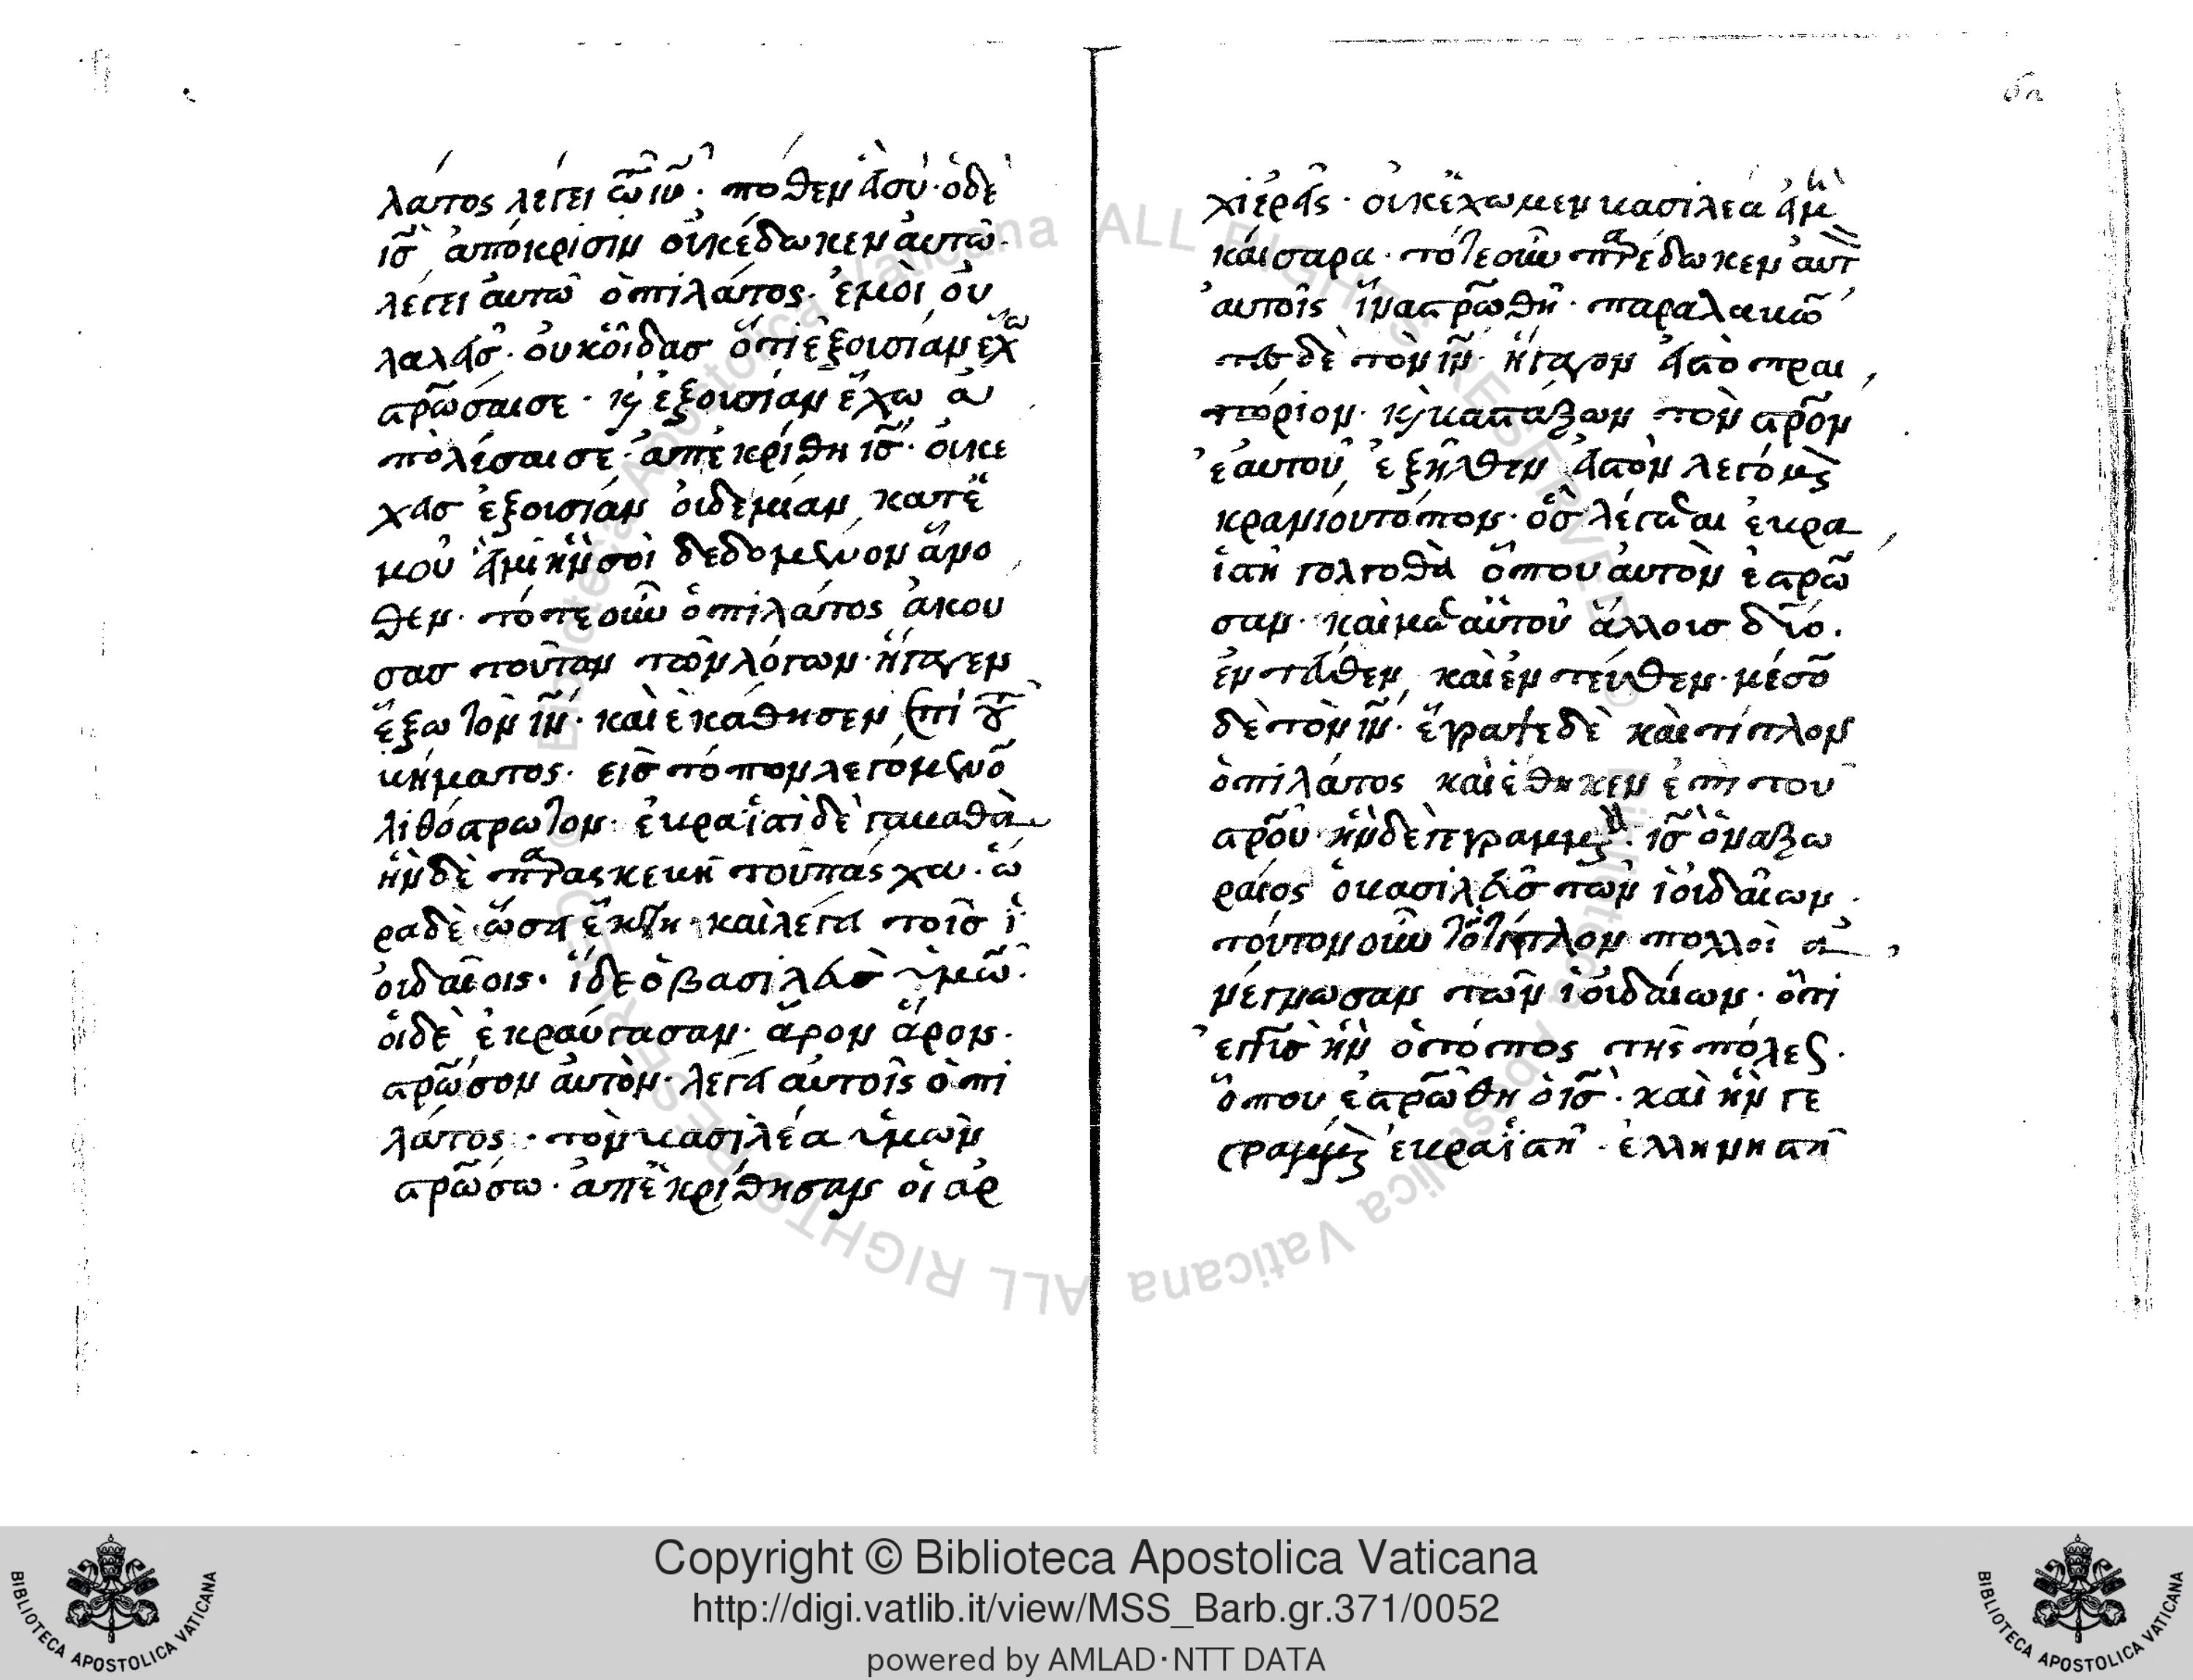 λάτος λέγει τῶ ιῦ· πόθεν εἶ σύ· ὁ δὲ
ισ̅ ἀπόκρισιν οὐκ ἔδωκεν αὐτῶ·
λέγει αὐτῶ ὁ πιλάτος· ἐμοὶ οὐ
λαλεῖσ· οὐκ οἶδασ ὅτι ἐξουσίαν ἔχω
στρῶσαι σε· κ̀ ἐξουσίαν ἔχω ἀ
πολέσαι σέ· ἀπεκρίθη ισ̅· οὐκ ἔ
χεισ ἐξουσίαν οὐδεμίαν κατἔ
μοῦ εἰ μὴ ἦν σοὶ δεδομένον ἄνο
θεν· τότε οὖν ὁ πιλάτος ἀκού
σασ τούτον τῶν λόγων· ἤγαγεν
ἔξω τὸν ιν̅· καὶ ἐκάθησεν ἐπὶ τοῦ
βήματος· εἰσ τόπον λεγόμενο̅
λιθόστρωτον· ἑβραϊστὶ δὲ γαβαθὰ
ἦν δὲ παρασκευῆ τοῦ πάσχα· ὥ
ρα δὲ ὥσει ἕκτη· καὶ λέγει τοῖσ ἰ
ουδαίοις· ἴδε ὁ βασιλεὺσ ὑμῶ̅·
οἱ δὲ ἐκραύγασαν· ἆρον ἆρον·
στρῶσον αὐτὸν· λέγει αὐτοῖς ὁ πι
λάτος· τὸν βασιλέα ὑμῶν
στρῶσω· ἀπεκρίθησαν οἱ ἀρ
χιερεῖς· οὐκ ἔχωμεν βασιλέα εἰ μὴ
καίσαρα· τότε οὖν παρέδωκεν αὐτὸν
αὐτοῖς ἵνα στρωθῆ· παραλαβό̅
τες δὲ τὸν ιν̅· ἤγαγον εἰσ τὸ πραι
τώριον· κ̀ βαστάζων τὸν στρο̅ν
ἑαυτοῦ ἐξῆλθεν εἰσ τὸν λεγόμενον
κρανίου τόπον· ὃσ λέγεται ἑβρα
ϊστὶ γολγοθὰ ὅπου αὐτὸν ἐστρώ
σαν· καὶ μετ αὐτοῦ ἄλλουσ δύο·
ἐντεύθεν καὶ ἐντεύθεν· μέσο̅
δὲ τὸν ιν̅· ἔγραψε δὲ καὶ τίτλον
ὁ πιλάτος καὶ ἔθηκεν ἐπὶ τοῦ
στρο̅υ· ἦν δὲ γεγραμμένον· ισ̅ ὁ ναζω
ραῖος ὁ βασιλεὺσ τῶν ἰουδαίων·
τούτον οὖν τὸ τίτλον πολλοὶ ἀ
νέγνωσαν τῶν ἰουδαίων· ὅτι
ἐγγὺσ ἦν ὁ τόπος τῆς πόλεως·
ὅπου ἐστρώθη ὁ ισ̅· καὶ ἦν γε
γραμμένον ἑβραϊστὶ· ἑλληνηστὶ
Copyright © Biblioteca Apostolica Vaticana
http://digi.vatlib.it/view/MSS_Barb.gr.371/0052
powered by AMLAD·NTT DATA